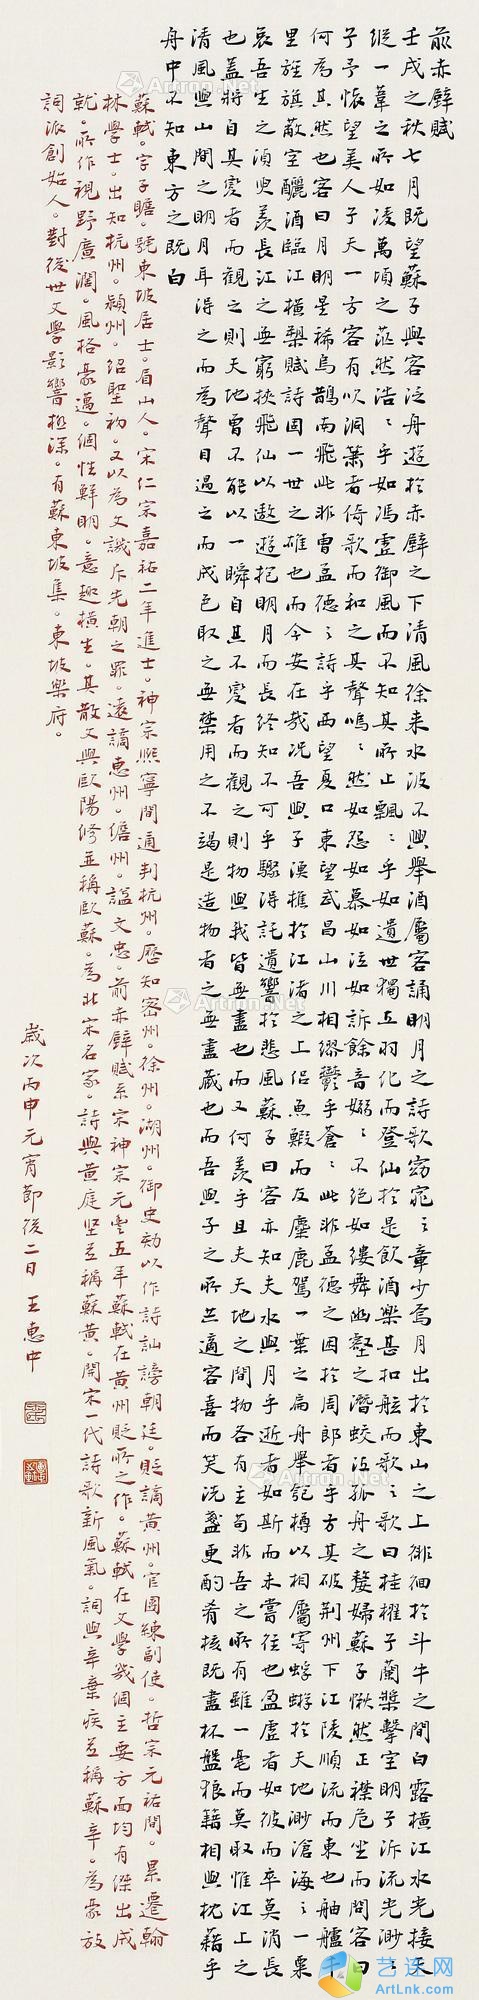 前赤壁賦
壬戌之秋七月既望蘇子與客泛舟遊於赤壁之下清風徐來水波不興舉酒屬客誦明月之詩歌窈窕之章少焉月出於東山之上徘徊於斗牛之間白露橫江水光接天
縱一葦之所如凌萬頃之茫然浩〻乎如馮虛御風而不知其所止飄〻乎如遺世獨立羽化而登仙於是飲酒樂甚扣舷而歌之歌曰桂櫂子蘭槳擊空明子泝流光渺〻
子予懷望美人子天一方客有吹洞簫者倚歌而和之其聲嗚〻然如怨如慕如泣如訴餘音嫋〻不絕如縷舞幽壑之潛蛟泣孤舟之嫠婦蘇子愀然正襟危坐而問客曰
何為其然也客曰月明星稀烏鵲南飛此非曹孟德之詩乎西望夏口東望武昌山川相繆鬱乎蒼〻此非孟德之困於周郎者乎方其破荊州下江陵順流而東也舳艫千
里旌旗蔽空釃酒臨江橫槊賦詩固一世之雄也而今安在哉況吾與子漁樵於江渚之上侶魚蝦而友麋鹿駕一葉之扁舟舉匏樽以相屬寄蜉蝣於天地渺滄海之一粟
哀吾生之須臾羨長江之無窮挾飛仙以遨遊抱明月而長終知不可乎驟得託遺響於悲風蘇子曰客亦知夫水與月乎逝者如斯而未嘗往也盈虛者如彼而卒莫消長
也蓋將自其變者而觀之則天地曾不能以一瞬自其不變者而觀之則物與我皆無盡也而又何羨乎且夫天地之間物各有主苟非吾之所有雖一毫而莫取惟江上之
清風與山間之明月耳得之而為聲目遇之而成色取之無禁用之不竭是造物者之無盡藏也而吾與子之所共適客喜而笑洗盞更酌肴核既盡杯盤狼籍相與枕藉乎
舟中不知東方之既白
蘇軾。字子瞻。號東坡居士。眉山人。宋仁宗嘉祐二年進士。神宗熙寧間通判杭州。歷知密州。徐州。湖州。御史劾以作詩訕謗朝廷。貶謫黃州。官團練副使。哲宗元祐間。累遷翰
林學士。出知杭州。潁州。紹聖初。又以為文譏斥先朝之罪。遠謫惠州。儋州。諡文忠。前赤壁賦系宋神宗元豐五年蘇軾在黃州貶所之作。蘇軾在文學幾個主要方面均有傑出成
就。所作視野廣濶。風格豪邁。個性鮮明。意趣橫生。其散文與歐陽修並稱歐蘇。為北宋名家。詩與黃庭堅並稱蘇黃。開宋一代詩歌新風氣。詞與辛棄疾並稱蘇辛。為豪放
詞派創始人。對後世文學影響極深。有蘇東坡集。東坡樂府。
歲次丙申元宵節後二日王惠中
Artron.Net
艺连网
ArtLnk.com